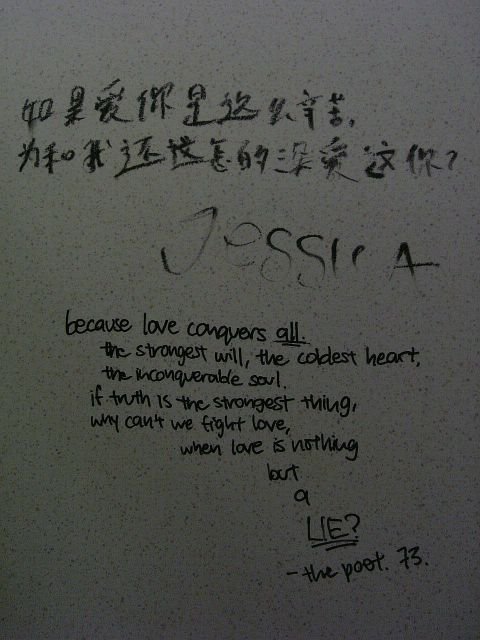 如果爱你是这么辛苦,
为和我还这怎的深爱这你?
JessicA
because love conquers all.
the strongest will, the coldest heart,
the inconquerable soul.
if truth is the strongest thing,
why can't we fight love,
when love is nothing
but
a
LIE?
- the poet. 73.